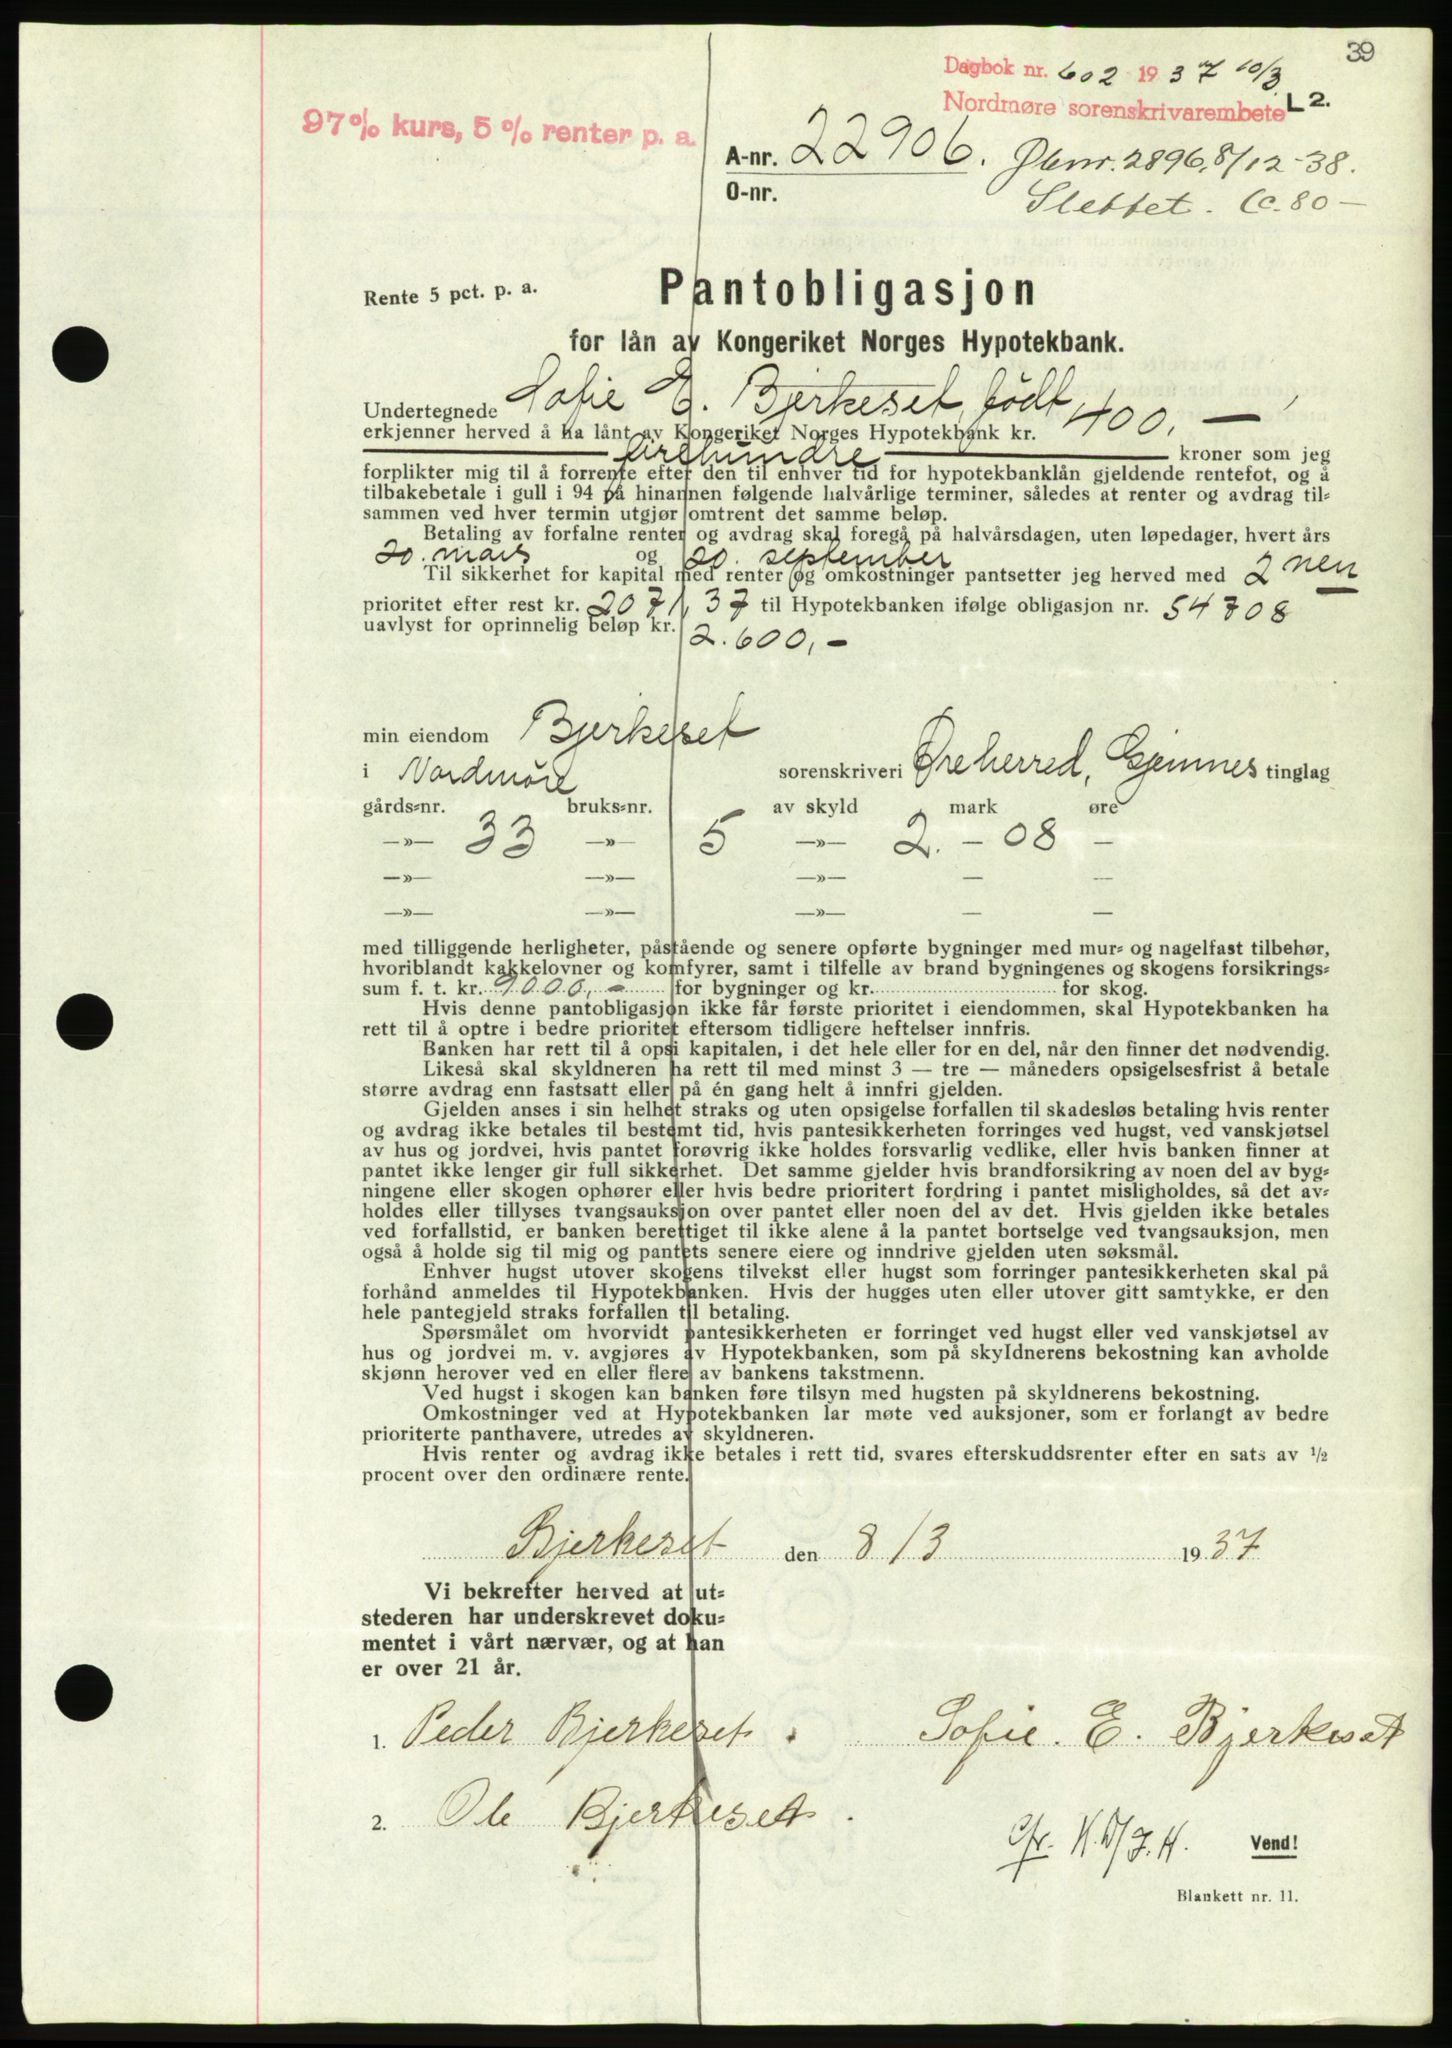 39
Dagbok nr. 602 1937 10/3
Nordmøre sorenskrivarembete L 2.
97% kurs, 5% renter p. a.
A-nr. 22906. Dbnr. 2896, 8/12-38.
O-nr. Slettet.
Rente 5 pct. p. a.
Pantobligasjon
for lån av Kongeriket Norges Hypotekbank.
Undertegnede Sofie E. Bjerkeset, født
erkjenner herved å ha lånt av Kongeriket Norges Hypotekbank kr. 400,—
firehundre kroner som jeg
forplikter mig til å forrente efter den til enhver tid for hypotekbanklån gjeldende rentefot, og å
tilbakebetale i gull i 94 på hinannen følgende halvårlige terminer, således at renter og avdrag til=
sammen ved hver termin utgjør omtrent det samme beløp.
Betaling av forfalne renter og avdrag skal foregå på halvårsdagen, uten løpedager, hvert års
20. mars og 20. september
Til sikkerhet for kapital med renter og omkostninger pantsetter jeg herved med 2 nen
prioritet efter rest kr. 2071,37 til Hypotekbanken ifølge obligasjon nr. 54708
uavlyst for oprinnelig beløp kr. 2.600,—
min eiendom Bjerkeset
i Nordmøre sorenskriveri Øre herred, Gjemnes tinglag
gårds=nr. bruks=nr. av skyld mark øre
—»— 33 —»— 5 —»— 2. — 08 —
—»— —»— —»— — —
—»— —»— —»— — —
med tilliggende herligheter, påstående og senere opførte bygninger med mur= og nagelfast tilbehør,
hvoriblandt kakkelovner og komfyrer, samt i tilfelle av brand bygningenes og skogens forsikrings=
sum f. t. kr. 9000,— for bygninger og kr. for skog.
Hvis denne pantobligasjon ikke får første prioritet i eiendommen, skal Hypotekbanken ha
rett til å optre i bedre prioritet eftersom tidligere heftelser innfris.
Banken har rett til å opsi kapitalen, i det hele eller for en del, når den finner det nødvendig.
Likeså skal skyldneren ha rett til med minst 3 — tre — måneders opsigelsesfrist å betale
større avdrag enn fastsatt eller på én gang helt å innfri gjelden.
Gjelden anses i sin helhet straks og uten opsigelse forfallen til skadesløs betaling hvis renter
og avdrag ikke betales til bestemt tid, hvis pantesikkerheten forringes ved hugst, ved vanskjøtsel
av hus og jordvei, hvis pantet forøvrig ikke holdes forsvarlig vedlike, eller hvis banken finner at
pantet ikke lenger gir full sikkerhet. Det samme gjelder hvis brandforsikring av noen del av byg=
ningene eller skogen ophører eller hvis bedre prioritert fordring i pantet misligholdes, så det av=
holdes eller tillyses tvangsauksjon over pantet eller noen del av det. Hvis gjelden ikke betales
ved forfallstid, er banken berettiget til ikke alene å la pantet bortselge ved tvangsauksjon, men
også å holde sig til mig og pantets senere eiere og inndrive gjelden uten søksmål.
Enhver hugst utover skogens tilvekst eller hugst som forringer pantesikkerheten skal på
forhånd anmeldes til Hypotekbanken. Hvis der hugges uten eller utover gitt samtykke, er den
hele pantegjeld straks forfallen til betaling.
Spørsmålet om hvorvidt pantesikkerheten er forringet ved hugst eller ved vanskjøtsel av
hus og jordvei m. v. avgjøres av Hypotekbanken, som på skyldnerens bekostning kan avholde
skjønn herover ved en eller flere av bankens takstmenn.
Ved hugst i skogen kan banken føre tilsyn med hugsten på skyldnerens bekostning.
Omkostninger ved at Hypotekbanken lar møte ved auksjoner, som er forlangt av bedre
prioriterte panthavere, utredes av skyldneren.
Hvis renter og avdrag ikke betales i rett tid, svares efterskuddsrenter efter en sats av 1/2
procent over den ordinære rente.
Bjerkeset den 8/3 1937
Vi bekrefter herved at ut=
stederen har underskrevet doku=
mentet i vårt nærvær, og at han
er over 21 år.
1. Peder Bjerkeset. Sofie. E. Bjerkeset
2. Ole Bjerkeset.
Vend!
Blankett nr. 11.